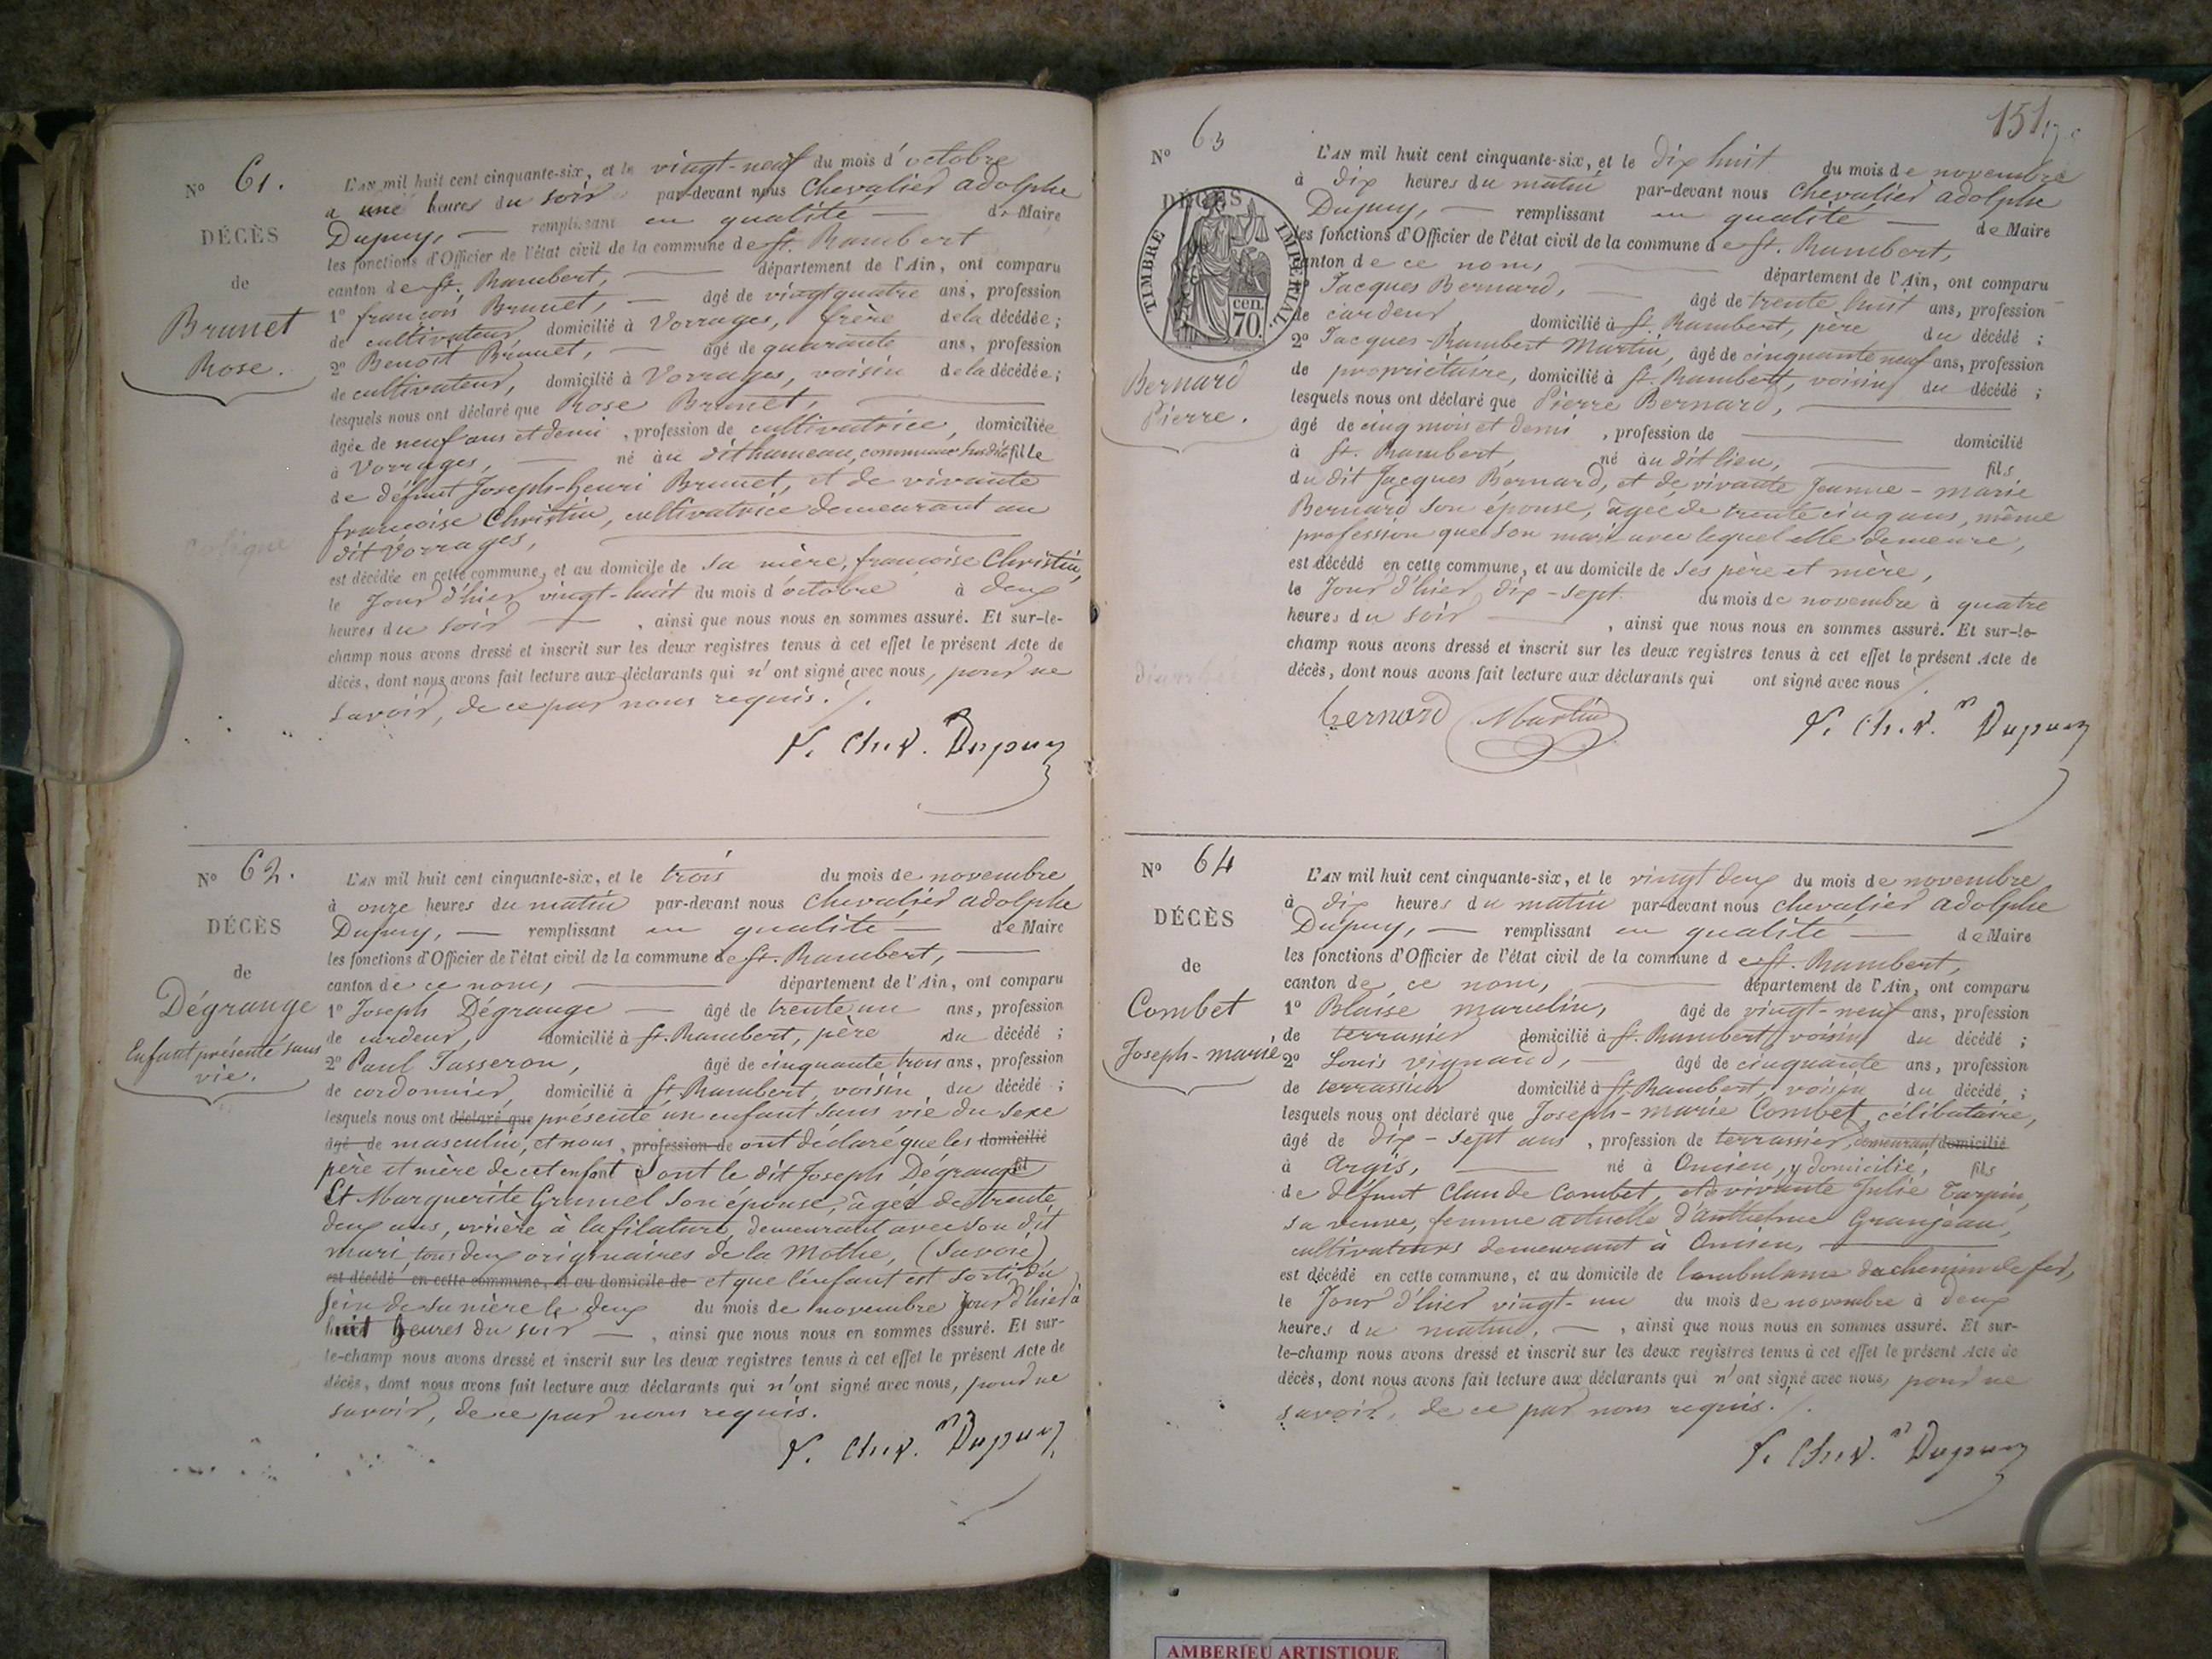 N° 61.
DÉCÈS
de
Brunet
Rose.
Colique
L'AN mil huit cent cinquante-six, et le vingt-neuf du mois d'octobre
à une heures du soir par-devant nous Chevalier adolphe
Dupuy, — remplissant en qualité — de Maire
les fonctions d'Officier de l'état civil de la commune de St. Rambert
canton de St. Rambert, — département de l'Ain, ont comparu
1° françois Brunet, — âgé de vingt quatre ans, profession
de cultivateur, domicilié à Vorrages, frère de la décédée;
2° Benoit Brunet, — âgé de quarante ans, profession
de cultivateur, domicilié à Vorrages, voisin de la décédée;
lesquels nous ont déclaré que Rose Brunet, —
âgée de neuf ans et demi, profession de cultivatrice, domiciliée
à Vorrages, — né au dit hameau, commune susdite fille
de défunt Joseph-henri Brunet, et de vivante
françoise Christin, cultivatrice demeurant au
dit Vorrages, —
est décédée en cette commune, et au domicile de sa mère, françoise Christin,
le Jour d'hier vingt-huit du mois d'octobre à deux
heures du soir —, ainsi que nous nous en sommes assuré. Et sur-le-
champ nous avons dressé et inscrit sur les deux registres tenus à cet effet le présent Acte de
décès, dont nous avons fait lecture aux déclarants qui n'ont signé avec nous, pour ne
savoir, de ce par nous requis. /.
Chev. Dupuy
N° 62.
DÉCÈS
de
Dégrange
Enfant présenté sans
vie.
L'AN mil huit cent cinquante-six, et le trois du mois de novembre
à onze heures du matin par-devant nous Chevalier adolphe
Dupuy, — remplissant en qualité — de Maire
les fonctions d'Officier de l'état civil de la commune de St. Rambert, —
canton de ce nom, — département de l'Ain, ont comparu
1° Joseph Dégrange — âgé de trente un ans, profession
de cardeur, domicilié à St. Rambert, père du décédé;
2° Paul Tasseron, âgé de cinquante trois ans, profession
de cordonnier, domicilié à St. Rambert, voisin du décédé;
lesquels nous ont déclaré que présenté un enfant sans vie du sexe
âgé de masculin, et nous, profession de ont déclaré que les domicilié
père et mère de cet enfant sont le dit Joseph Dégrange
Et Marguerite Grumel son épouse, âgée de trente
deux ans, ovrière à la filature, demeurant avec son dit
mari, tous deux originaires de la Mothe, (Savoie)
est décédé en cette commune, et au domicile de et que l'enfant est sorti du
sein de sa mère le deux du mois de novembre jour d'hier à
huit heures du soir —, ainsi que nous nous en sommes assuré. Et sur-
le-champ nous avons dressé et inscrit sur les deux registres tenus à cet effet le présent Acte de
décès, dont nous avons fait lecture aux déclarants qui n'ont signé avec nous, pour ne
savoir, de ce par nous requis.
Chev. Dupuy
151
N° 63
DÉCÈS
TIMBRE IMPÉRIAL.
cen.
70.
Bernard
Pierre.
L'AN mil huit cent cinquante-six, et le dix huit du mois de novembre
à dix heures du matin par-devant nous Chevalier adolphe
Dupuy, — remplissant en qualité — de Maire
les fonctions d'Officier de l'état civil de la commune de St. Rambert,
canton de ce nom, — département de l'Ain, ont comparu
Jacques Bernard, — âgé de trente huit ans, profession
de cardeur, domicilié à St. Rambert, père du décédé;
2° Jacques-Rambert Martin, âgé de cinquante neuf ans, profession
de propriétaire, domicilié à St. Rambert, voisin du décédé;
lesquels nous ont déclaré que Pierre Bernard, —
âgé de cinq mois et demi, profession de — domicilié
à St. Rambert, né au dit lieu, — fils
du dit Jacques Bernard, et de vivante Jeanne-marie
Bernard son épouse, âgée de trente cinq ans, même
profession que son mari avec lequel elle demeure,
est décédé en cette commune, et au domicile de ses père et mère,
le Jour d'hier dix-sept du mois de novembre à quatre
heures du soir —, ainsi que nous nous en sommes assuré. Et sur-le-
champ nous avons dressé et inscrit sur les deux registres tenus à cet effet le présent Acte de
décès, dont nous avons fait lecture aux déclarants qui ont signé avec nous /.
bernard Martin Chev. Dupuy
N° 64
DÉCÈS
de
Combet
Joseph-marie
L'AN mil huit cent cinquante-six, et le vingt deux du mois de novembre
à dix heures du matin par-devant nous chevalier adolphe
Dupuy, — remplissant en qualité — de Maire
les fonctions d'Officier de l'état civil de la commune de St. Rambert,
canton de ce nom, — département de l'Ain, ont comparu
1° Blaise marulin, âgé de vingt-neuf ans, profession
de terrassier domicilié à St. Rambert, voisin du décédé;
2° Louis vignaud, — âgé de cinquante ans, profession
de terrassier domicilié à St. Rambert, voisin du décédé;
lesquels nous ont déclaré que Joseph-marie Combet, célibataire,
âgé de dix-sept ans, profession de terrassier, demeurant domicilié
à Argis, — né à Oncieu, y domicilié, fils
de défunt Claude Combet, et de vivante Julie Carpin,
sa veuve, femme actuelle d'Anthelme Granjean,
cultivateurs demeurant à Oncieu, —
est décédé en cette commune, et au domicile de l'ambulance du chemin de fer,
le Jour d'hier vingt-un du mois de novembre à deux
heures du matin, —, ainsi que nous nous en sommes assuré. Et sur-
le-champ nous avons dressé et inscrit sur les deux registres tenus à cet effet le présent Acte de
décès, dont nous avons fait lecture aux déclarants qui n'ont signé avec nous, pour ne
savoir, de ce par nous requis. /.
Chev. Dupuy
AMBERIEU ARTISTIQUE